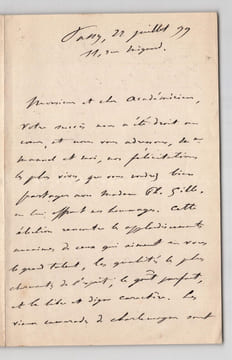 Passy, 22 juillet 99
11, rue
Monsieur et cher Académicien,
Votre succès nous a été droit au
cœur, et nous vous adressons,
et moi, nos félicitations
les plus vives, que vous voudrez bien
partager avec Madame Ph. Gille,
en lui offrant nos hommages. Cette
élection rencontre les applaudissements
de ceux qui aiment en vous
le grand talent, les qualités les plus
charmantes de l'esprit, le goût parfait,
et le libre et digne caractère. Les
vieux camarades de Charlemagne sont